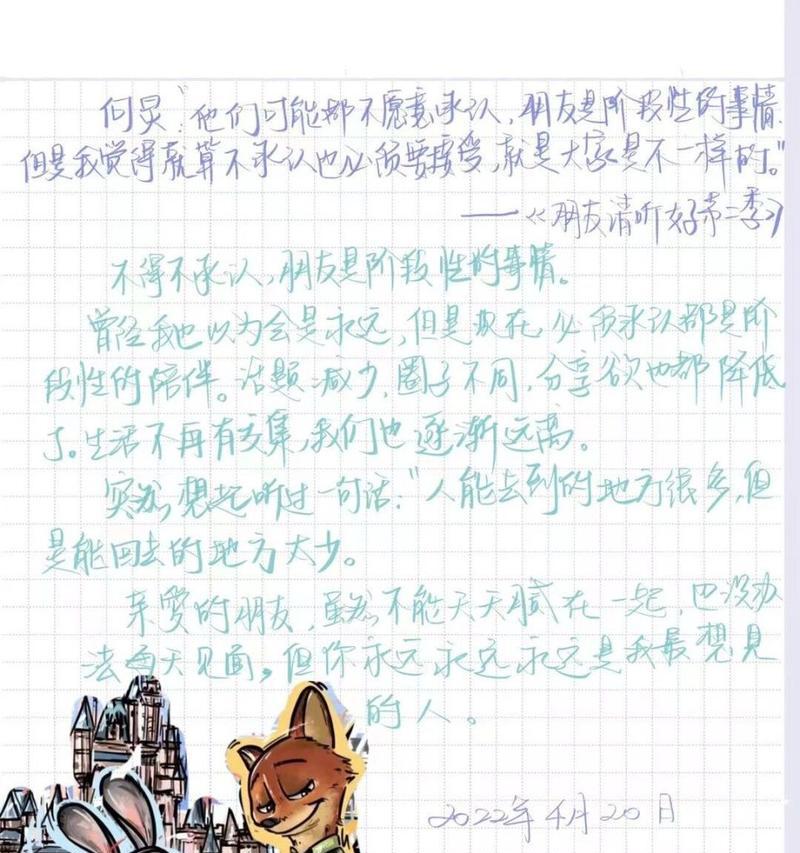 何炅:"他们可能都不愿意承认,朋友是阶段性的事情.
但是我觉得就算不承认也必须要接受,就是大家是不一样的。"
——《朋友请听好第二季》
不得不承认,朋友是阶段性的事情。
曾经我也以为会是永远,但是现在,必须承认都是阶
段性的陪伴。话题减少,圈子不同,分享欲也都降低
了。生活不再有交集,我们也逐渐远离。
突然,想起听过一句话:"人能去到的地方很多,但
是能回去的地方太少。
亲爱的朋友,虽然不能天天腻在一起,也没办
法每天见面,但你永远永远永远是我最想见
的人。
2022年4月20日